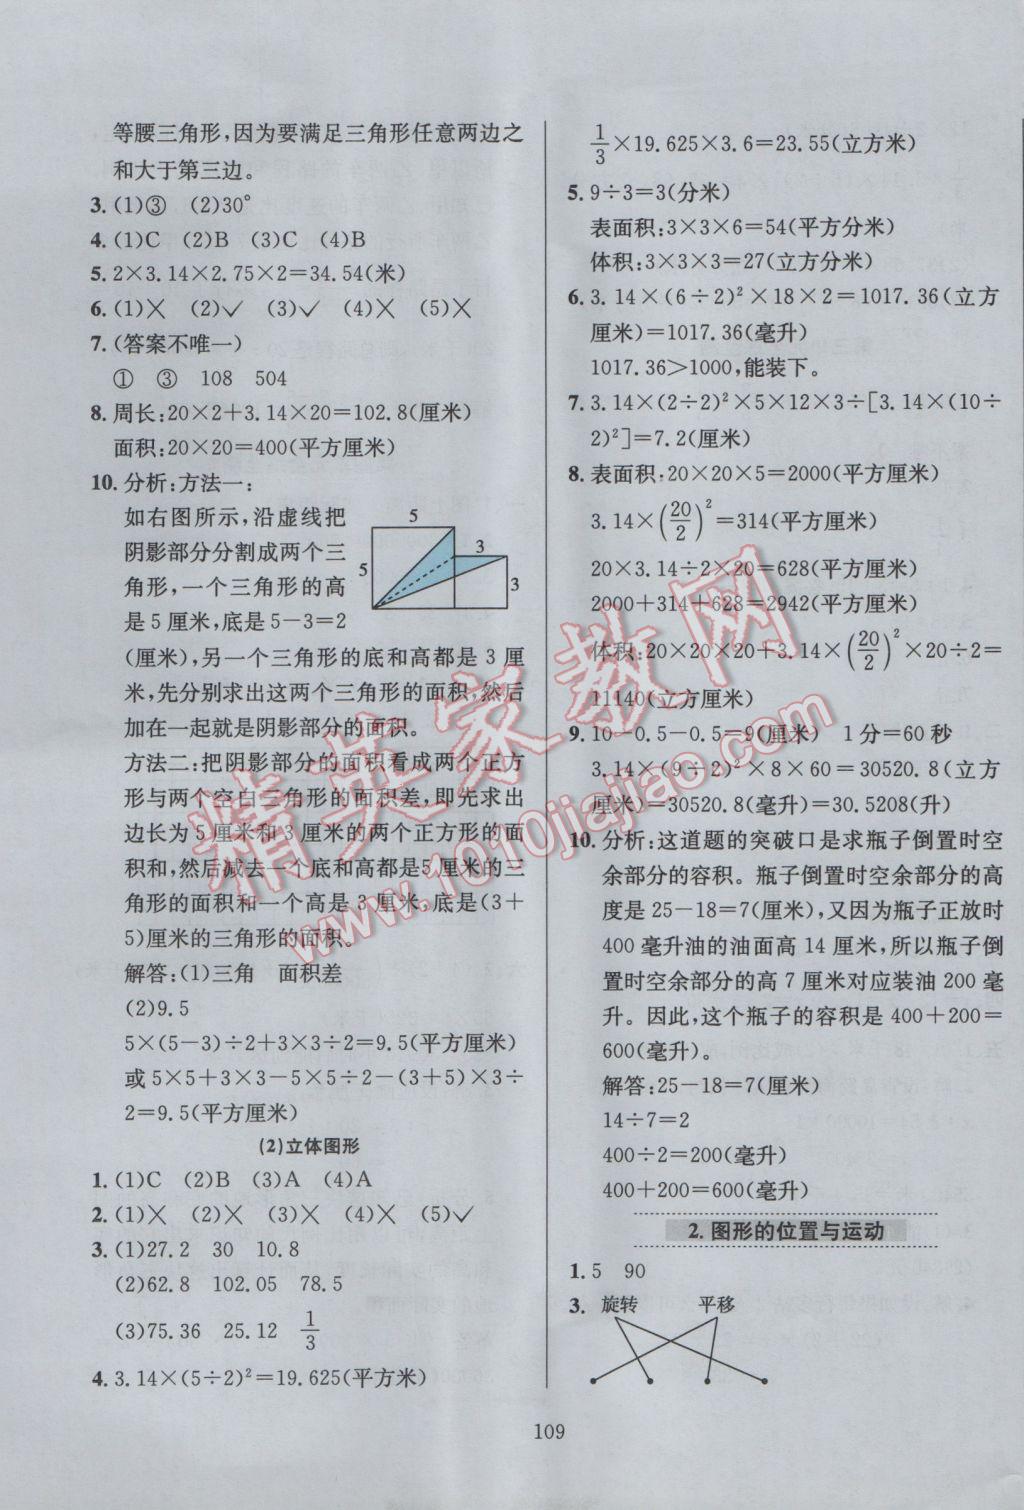 等腰三角形，因为要满足三角形任意两边之
和大于第三边。
3. (1)③ (2)30°
4. (1)C (2)B (3)C (4)B
5. 2×3.14×2.75×2=34.54(米)
6. (1)× (2)✓ (3)✓ (4)× (5)×
7. (答案不唯一)
① ③ 108 504
8. 周长:20×2+3.14×20=102.8(厘米)
面积:20×20=400(平方厘米)
10. 分析:方法一:
如右图所示，沿虚线把
阴影部分分割成两个三
角形，一个三角形的高
是5厘米，底是5-3=2
5
3
5
3
(厘米)，另一个三角形的底和高都是3厘
米，先分别求出这两个三角形的面积，然后
加在一起就是阴影部分的面积。
方法二:把阴影部分的面积看成两个正方
形与两个空白三角形的面积差，即先求出
边长为5厘米和3厘米的两个正方形的面
积和，然后减去一个底和高都是5厘米的三
角形的面积和一个高是3厘米，底是(3+
5)厘米的三角形的面积。
解答:(1)三角 面积差
(2)9.5
5×(5-3)÷2+3×3÷2=9.5(平方厘米)
或5×5+3×3-5×5÷2-(3+5)×3÷
2=9.5(平方厘米)
(2)立体图形
1. (1)C (2)B (3)A (4)A
2. (1)× (2)× (3)× (4)× (5)✓
3. (1)27.2 30 10.8
(2)62.8 102.05 78.5
(3)75.36 25.12 1/3
4. 3.14×(5÷2)²=19.625(平方米)
1/3×19.625×3.6=23.55(立方米)
5. 9÷3=3(分米)
表面积:3×3×6=54(平方分米)
体积:3×3×3=27(立方分米)
6. 3.14×(6÷2)²×18×2=1017.36(立方
厘米)=1017.36(毫升)
1017.36>1000，能装下。
7. 3.14×(2÷2)²×5×12×3÷[3.14×(10÷
2)²]=7.2(厘米)
8. 表面积:20×20×5=2000(平方厘米)
3.14×(20/2)²=314(平方厘米)
20×3.14÷2×20=628(平方厘米)
2000+314+628=2942(平方厘米)
体积:20×20×20+3.14×(20/2)²×20÷2=
11140(立方厘米)
9. 10-0.5-0.5=9(厘米) 1分=60秒
3.14×(9÷2)²×8×60=30520.8(立方
厘米)=30520.8(毫升)=30.5208(升)
10. 分析:这道题的突破口是求瓶子倒置时空
余部分的容积。瓶子倒置时空余部分的高
度是25-18=7(厘米)，又因为瓶子正放时
400毫升油的油面高14厘米，所以瓶子倒
置时空余部分的高7厘米对应装油200毫
升。因此，这个瓶子的容积是400+200=
600(毫升)。
解答:25-18=7(厘米)
14÷7=2
400÷2=200(毫升)
400+200=600(毫升)
2. 图形的位置与运动
1. 5 90
3. 旋转 平移
109
精英家教网
www.1010jiajiao.com